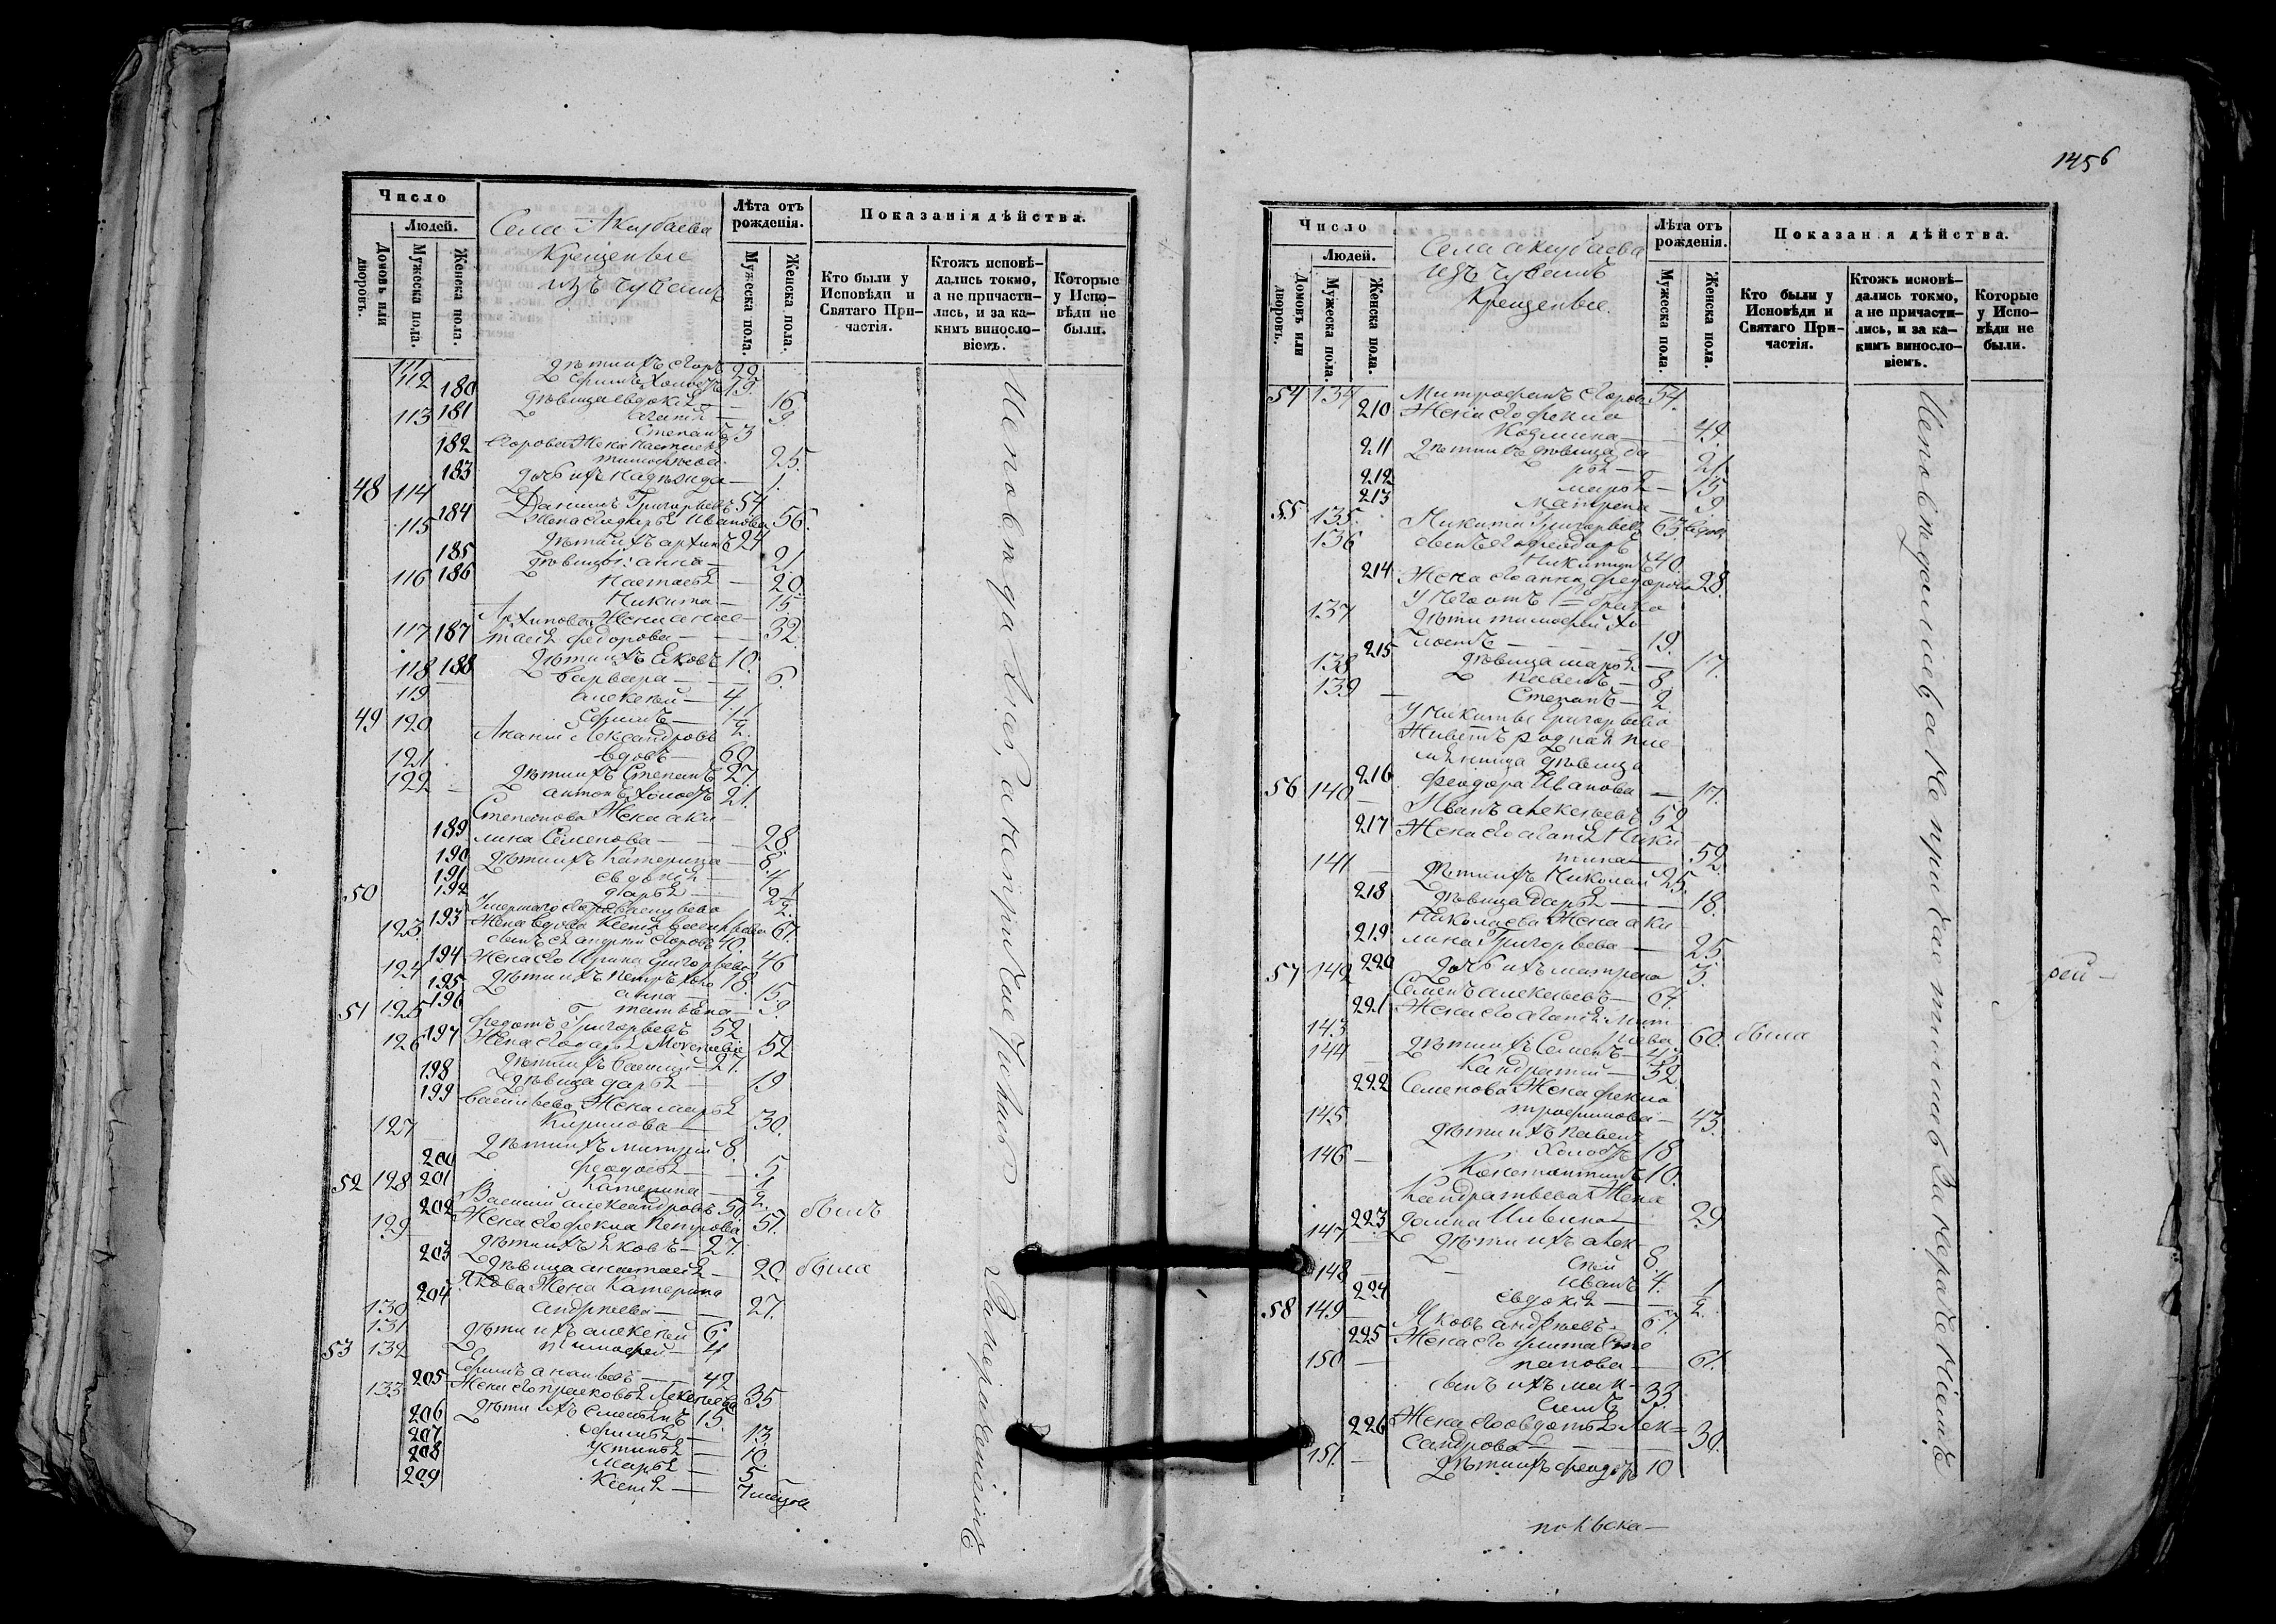 Число
Людей.
Домовъ или дворовъ.
Мужеска пола.
Женска пола.
Села Акубаева
Крещеные
изъ Чувашъ
Лѣта отъ рожденія.
Мужеска пола.
Женска пола.
Показанія дѣйства.
Кто были у Исповѣди и Святаго Причастія.
Ктожъ исповѣдались токмо, а не причастились, и за какимъ винословіемъ.
Которые у Исповѣди не были.
111 Дѣти ихъ Егоръ 22
112 Ефимъ холостъ 19.
180 дѣвица евдокія — 16
181 агапія — 9.
113 Степанъ 3
182 Егорова Жена настасья
тимофеева 25.
183 дочь ихъ надежда — 1.
48 114 Данилъ Григорьевъ 54
184 Жена его дарья Иванова 56.
115 Дѣти ихъ архипъ 24
185 дѣвицы: анна — 21
186 настасья — 20.
116 Никита — 15
Архипова Жена анас-
187 тасія федорова — 32.
117 Дѣти ихъ Яковъ 10.
188 варвара — 6.
118 алексѣй — 4.
119 Ефимъ — 1 1/2.
49 120 Ананій Александровъ
вдовъ — 60
121 Дѣти ихъ Степанъ 27.
122 антонъ холостъ 21.
Степанова Жена аку-
189 лина Семенова — 28
190 Дѣти ихъ Катерина — 8.
191 евдокія — 4
192 дарья — 2 1/2.
50 Умершаго Егора васильева
193 Жена вдова Ксенія 67.
123. сынъ ея андрей егоровъ 40
194 Жена его Ирина григорьева 46
124 Дѣти ихъ петръ холо 18.
195 анна — 15
196 татьяна — 9.
51 125 федотъ Григорьевъ 52
197 Жена его дарья 52
126 Дѣти ихъ василій — 27.
198 Дѣвица дарья — 19
199 васильева Жена марья
Кирилова — 30.
127 Дѣти ихъ митрій 8.
200 феодосья — 5
201 Катерина — 1/2.
52 128 Василій александровъ 50 былъ
202 Жена его фекла петрова 51.
129 Дѣти ихъ Яковъ — 27.
203 Дѣвица анастасія — 20. была
204 Якова Жена Катерина
андреева — 27.
130 Дѣти ихъ алексѣй 6.
131 тимофей — 4
53 132 Ефимъ ананьевъ — 42
205 Жена его прасковья Алексѣева 35
133 Дѣти ихъ 15.
206 Ефимья — 13.
207 Устинья — 10.
208 Марья — 5.
209 Ксенія — 7 мѣсяц
Исповѣдались, а не причастились За нерачениемъ
1456
Число
Людей.
Домовъ или дворовъ.
Мужеска пола.
Женска пола.
Села акубаева
изъ чувашъ
Крещеные.
Лѣта отъ рожденія.
Мужеска пола.
Женска пола.
Показанія дѣйства.
Кто были у Исповѣди и Святаго Причастія.
Ктожъ исповѣдались токмо, а не причастились, и за какимъ винословіемъ.
Которые у Исповѣди не были.
54 134 Митрофанъ Егоровъ 54.
210 Жена его фекла
Козмина — 44.
211 Дѣти ихъ дѣвица да
рья — 21.
212 марья — 15
213 Матрена — 9
55 135. Никита Григорьевъ 63. вдовъ
136 сынъ его феодоръ
Никитинъ 40.
214 Жена его анна федорова 28.
У него отъ 1го брака
137 Дѣти тимофей хо
лостъ — 19.
215 дѣвица марья — 17.
138 павелъ — 8
139 Степанъ — 2
У Никиты Григорьева
Живетъ родная пле
мянница дѣвица
216 феодора Иванова — 17.
56 140 Иванъ алексѣевъ 52
217 Жена его агапія Ники
тина — 52.
141 Дѣти ихъ Николай 25.
218 дѣвица дарья — 18.
Николаева Жена аку
219 лина Григорьева — 25.
220 дочь ихъ матрена 3.
57 142 Семенъ алексѣевъ — 64.
221 Жена его агапія Мат
вѣева 60. была
143 Дѣти ихъ Семенъ — 43
144 Кандратій — 32.
222 Семенова Жена фекла
трофимова — 43.
145 Дѣти ихъ павелъ
холостъ 18
146 Константинъ 10.
Кандратьева Жена
223 29
147 Дѣти ихъ алек-
сѣй 8.
148 Иванъ 4.
224 евдокія — 1/2.
58 149 Яковъ андреевъ — 67.
225 Жена его улита Сте
панова — 61.
150 сынъ ихъ мак-
симъ 33.
226 Жена его авдотья Алек-
сандрова — 30.
151. Дѣти ихъ феодоръ 10
Исповѣдались, а не причастились За нерачениемъ